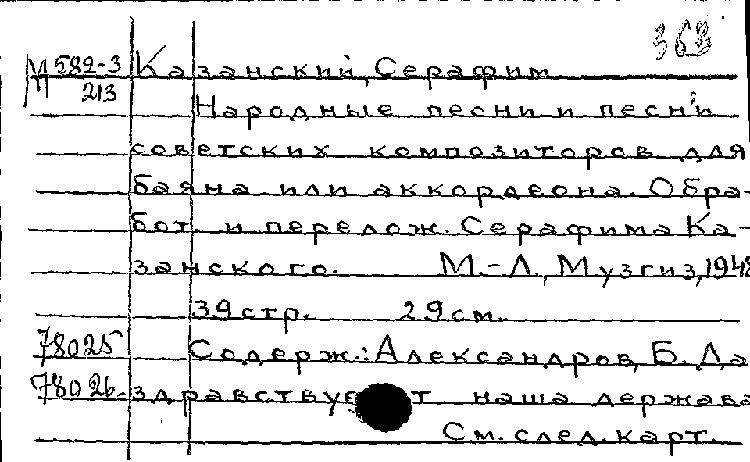 363
М 582-3 Казанский, Серафим
213
Народные песни и песни
советских композиторов для
баяна или аккордеона. Обра-
бот. и перелож. Серафима Ка-
занского. М.-Л., Музгиз, 1948
39 стр. 29 см.
78025 Содерж.: Александров, Б. Да
78026 здравствует наша держава
См. след. карт.